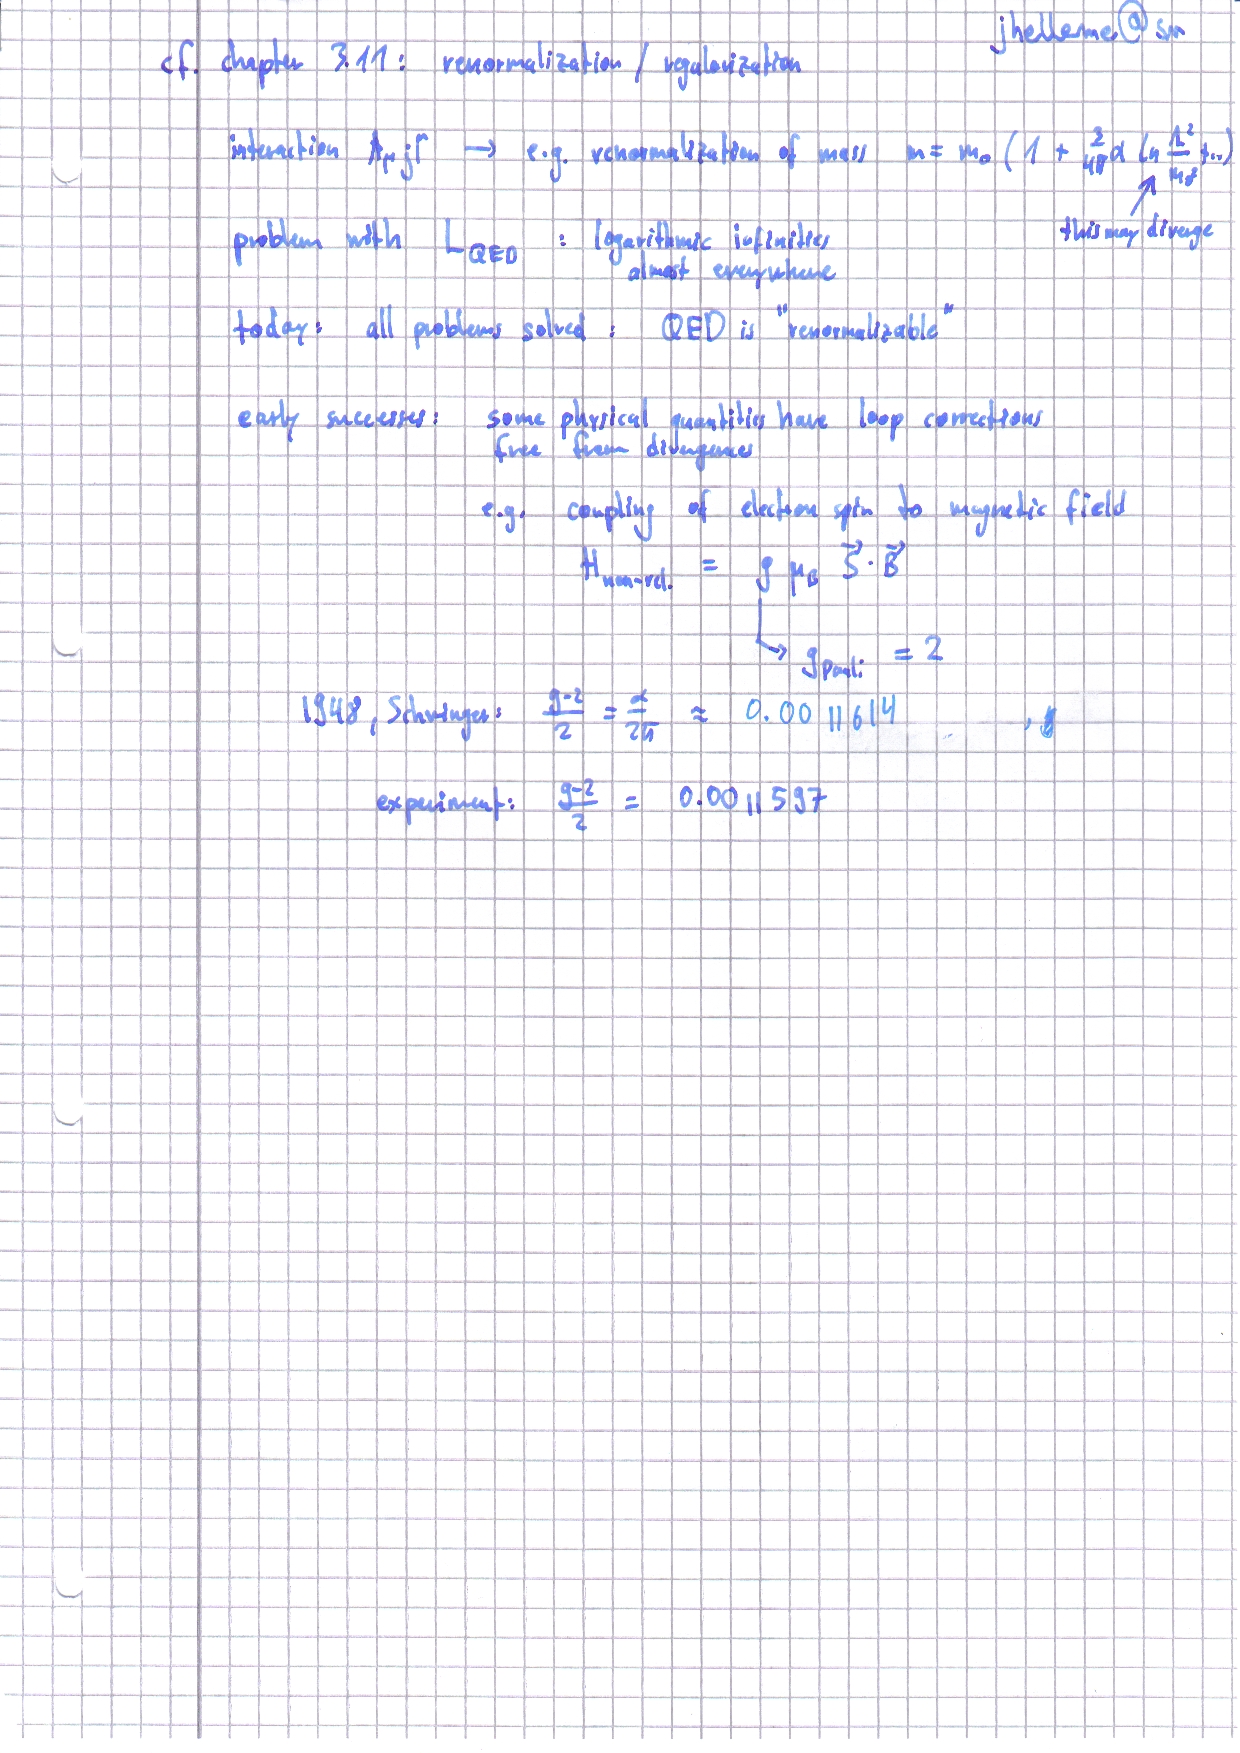 jhelleme@sm
cf. chapter 3.11: renormalization / regularization
interaction Aμ jμ → e.g. renormalization of mass m = m₀ (1 + 3/4π α ln Λ²/m₀² + ...)
this may diverge
problem with L_QED : logarithmic infinities
almost everywhere
today: all problems solved: QED is "renormalizable"
early successes: some physical quantities have loop corrections
free from divergences
e.g. coupling of electron spin to magnetic field
H_non-rel. = g μ_B S⃗ · B⃗
→ g_Pauli = 2
1948, Schwinger: (g-2)/2 = α/2π ≈ 0.0011614
experiment: (g-2)/2 = 0.0011597